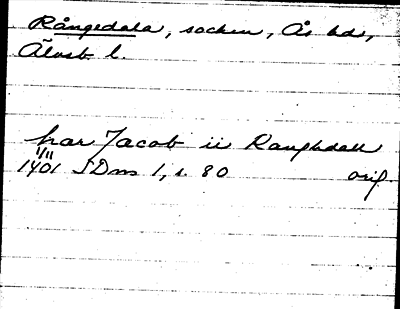 Rångedala, socken, Ås hd,
Älvsb l.
har Jacob ii Ranghdall
11/11
1401 SDns 1, s. 80 orig